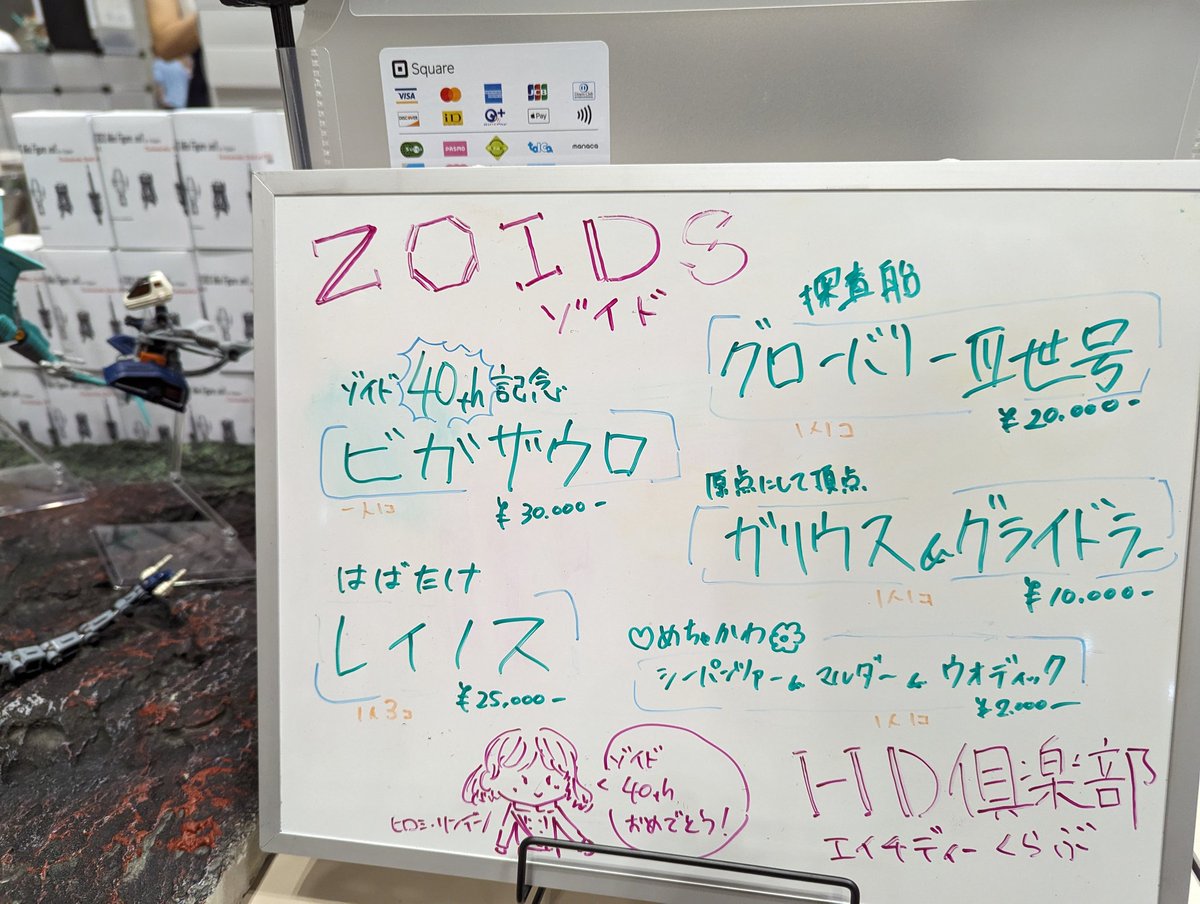 Square
VISA
JCB
DISCOVER
iD
Pay
PASMO
toica
manaca
ZOIDS
ゾイド
ゾイド40th記念
ビガザウロ
一人1コ
¥30.000-
はばたけ
レイノス
¥25,000-
1人3コ
探査船
グローバリーⅢ世号
¥20.000-
1人1コ
原点にして頂点
ガリウス&グライドラー
¥10.000-
1人1コ
♡めちゃかわ
シーパンツァー&マルダー&ウオディック
¥2.000-
1人1コ
ゾイド
40th
おめでとう!
HD倶楽部
エイチディーくらぶ